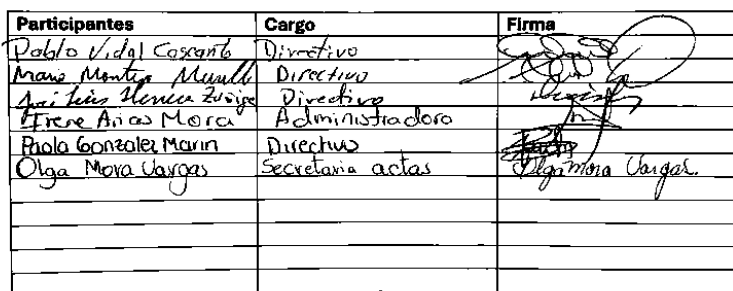 Participantes Cargo Firma
Pablo Vidal Cascante Directivo
Mario Montes Murillo Directivo
José Luis Herrera Zúñiga Directivo
Irene Arias Mora Administradora
Paola Gonzalez Marin Directivo
Olga Mora Vargas Secretaria actas Olga Mora Vargas.